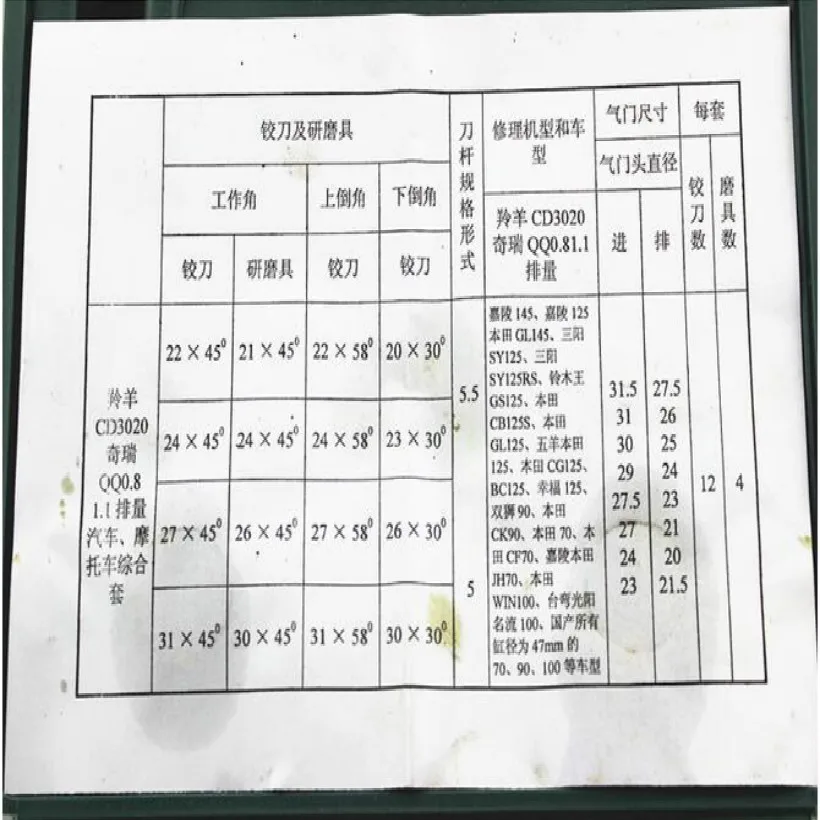 铰刀及研磨具
刀杆规格形式
修理机型和车型
气门尺寸
每套
工作角
上倒角
下倒角
气门头直径
铰刀数
磨具数
铰刀
研磨具
铰刀
铰刀
羚羊 CD3020
奇瑞 QQ0.81.1
排量
进
排
羚羊
CD3020
奇瑞
QQ0.8
1.1 排量
汽车、摩
托车综合
套
22×45⁰ 21×45⁰ 22×58⁰ 20×30⁰
24×45⁰ 24×45⁰ 24×58⁰ 23×30⁰
27×45⁰ 26×45⁰ 27×58⁰ 26×30⁰
31×45⁰ 30×45⁰ 31×58⁰ 30×30⁰
5.5
5
嘉陵 145、嘉陵 125
本田 GL145、三阳
SY125、三阳
SY125RS、铃木王
GS125、本田
CB125S、本田
GL125、五羊本田
125、本田 CG125、
BC125、幸福 125、
双狮 90、本田
CK90、本田 70、本
田 CF70、嘉陵本田
JH70、本田
WIN100、台弯光阳
名流 100、国产所有
缸径为 47mm 的
70、90、100 等车型
31.5 27.5
31 26
30 25
29 24
27.5 23
27 21
24 20
23 21.5
12
4